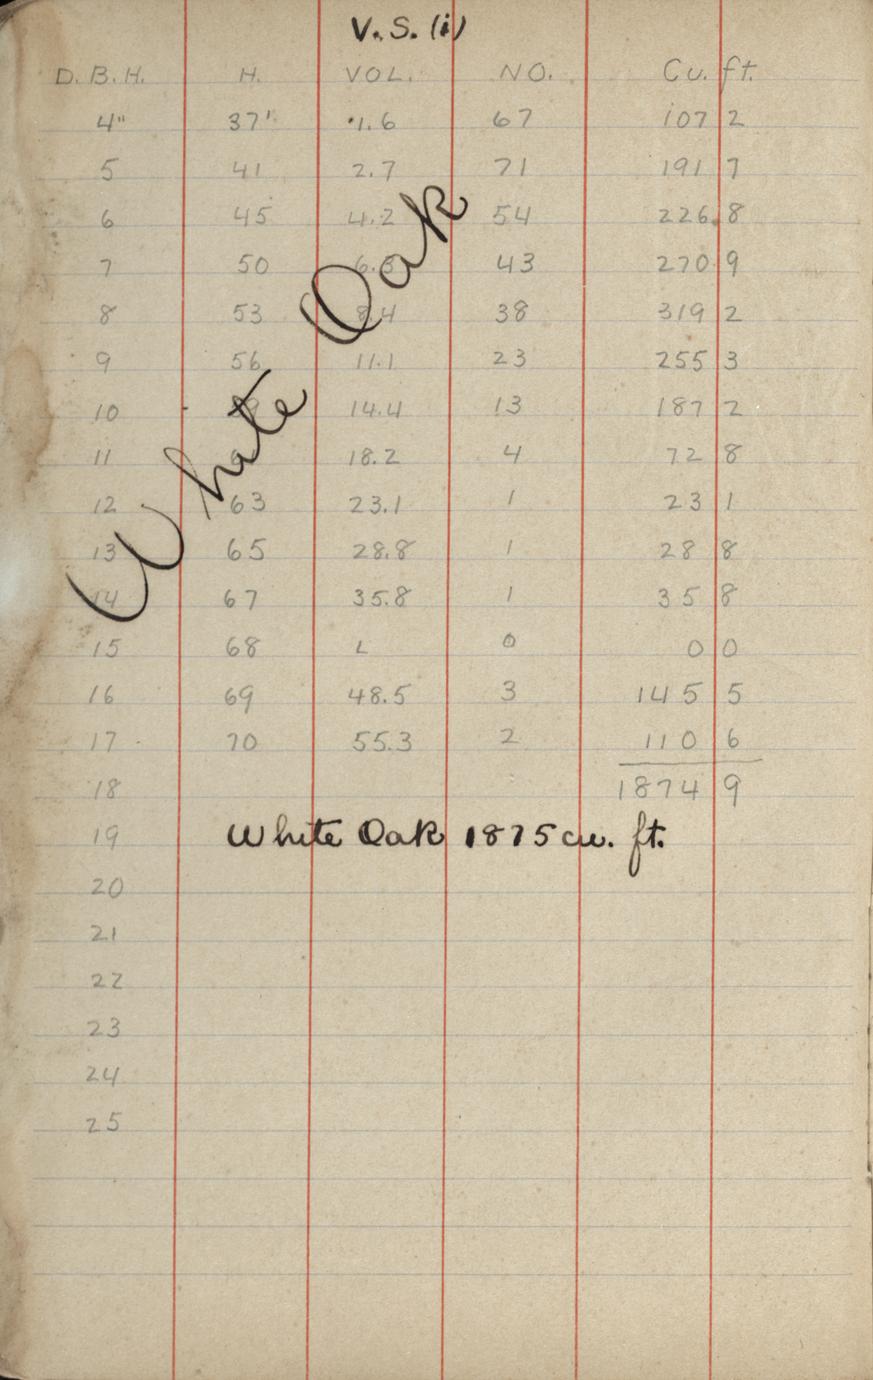 V.S. (i)
D.B.H. H. VOL. NO. Cu. ft.
4" 37' 1.6 67 107 2
5 41 2.7 71 191 7
6 45 4.2 54 226.8
7 50 6.3 43 270 9
8 53 8.4 38 319 2
9 56 11.1 23 255 3
10 14.4 13 187 2
11 18.2 4 72 8
12 63 23.1 1 23 1
13 65 28.8 1 28 8
14 67 35.8 1 35 8
15 68 L 0 0 0
16 69 48.5 3 145 5
17 70 55.3 2 110 6
18 1874 9
19 White Oak 1875 cu. ft.
20
21
22
23
24
25
White Oak